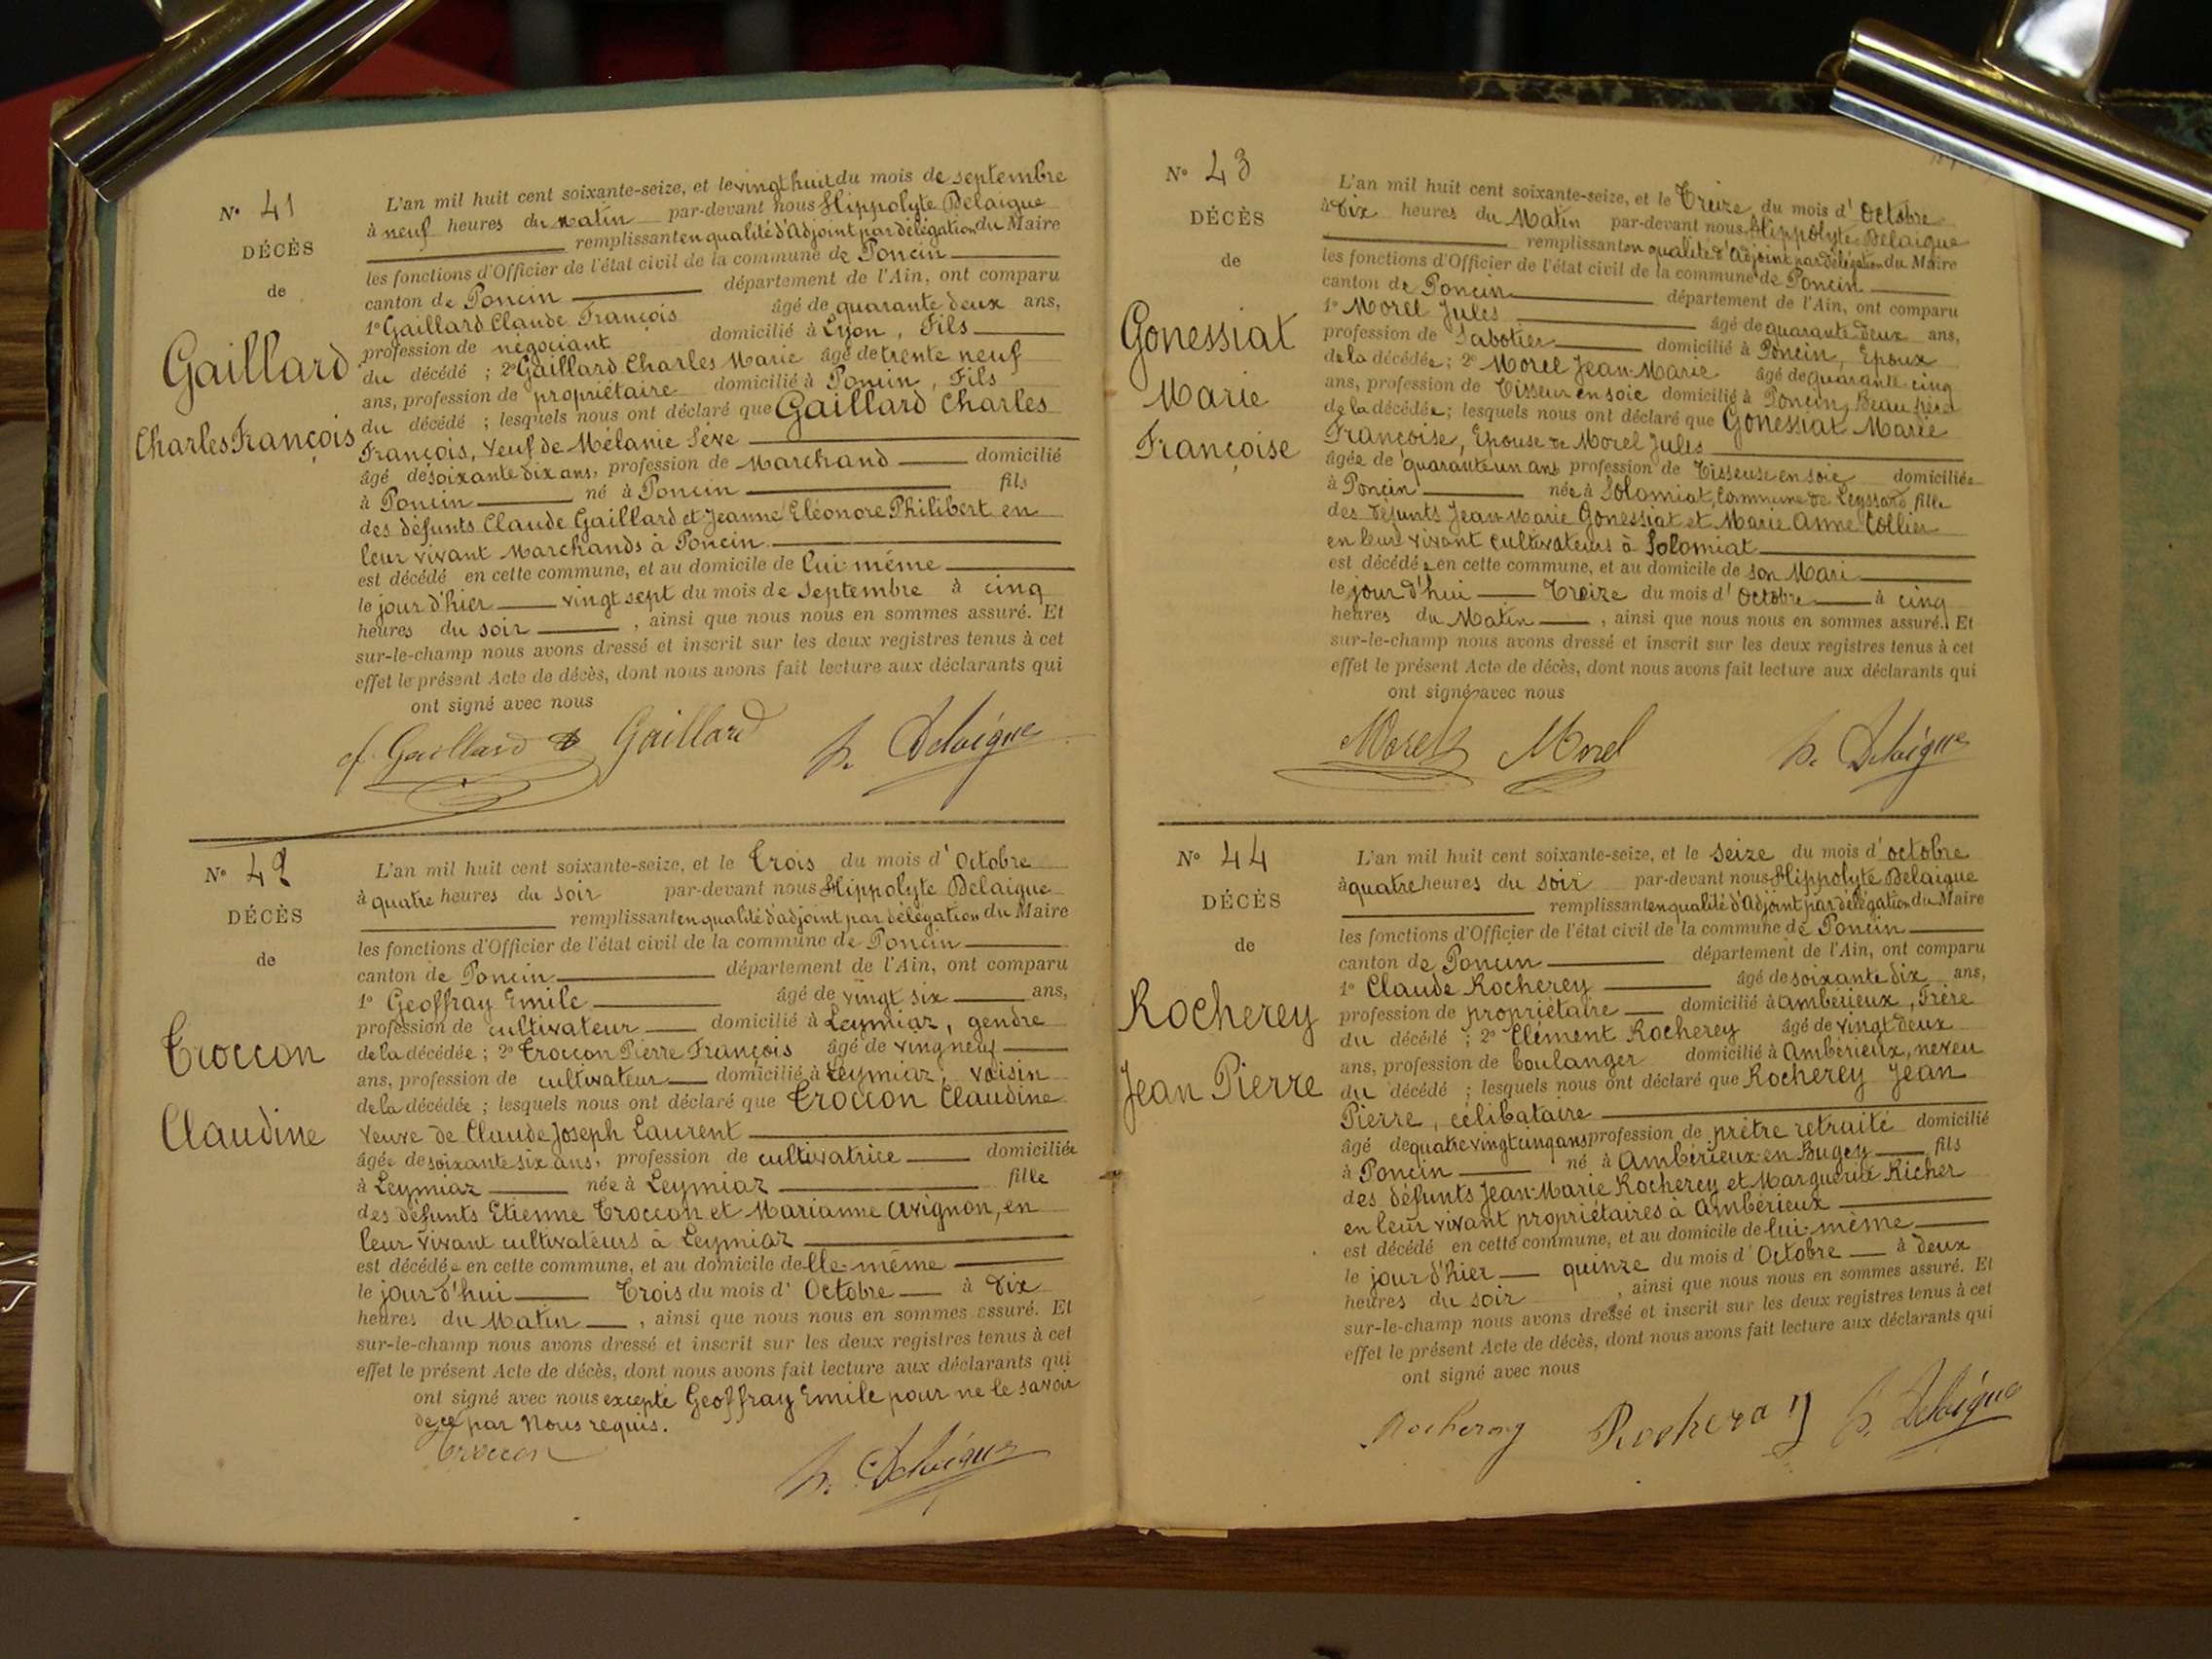 N° 41
DÉCÈS
de
Gaillard
Charles François
L'an mil huit cent soixante-seize, et le vingt huit du mois de septembre
à neuf heures du matin par-devant nous Hippolyte Delaigue
remplissant en qualité d'Adjoint par délégation du Maire
les fonctions d'Officier de l'état civil de la commune de Poncin
canton de Poncin département de l'Ain, ont comparu
1° Gaillard Claude François âgé de quarante deux ans,
profession de négociant domicilié à Lyon, Fils
du décédé ; 2° Gaillard Charles Marie âgé de trente neuf
ans, profession de propriétaire domicilié à Poncin, Fils
du décédé ; lesquels nous ont déclaré que Gaillard Charles
François, Veuf de Mélanie Sève
âgé de soixante dix ans, profession de Marchand domicilié
à Poncin né à Poncin fils
des défunts Claude Gaillard et Jeanne Eléonore Philibert en
leur vivant Marchands à Poncin
est décédé en cette commune, et au domicile de lui-même
le jour d'hier vingt sept du mois de Septembre à cinq
heures du soir , ainsi que nous nous en sommes assuré. Et
sur-le-champ nous avons dressé et inscrit sur les deux registres tenus à cet
effet le présent Acte de décès, dont nous avons fait lecture aux déclarants qui
ont signé avec nous
cf. Gaillard Gaillard h. Delaigue
N° 42
DÉCÈS
de
Troccon
Claudine
L'an mil huit cent soixante-seize, et le Trois du mois d' Octobre
à quatre heures du soir par-devant nous Hippolyte Delaigue
remplissant en qualité d'adjoint par délégation du Maire
les fonctions d'Officier de l'état civil de la commune de Poncin
canton de Poncin département de l'Ain, ont comparu
1° Geoffray Emile âgé de vingt six ans,
profession de cultivateur domicilié à Leymiaz, gendre
de la décédée ; 2° Troccon Pierre François âgé de vingneuf
ans, profession de cultivateur domicilié à Leymiaz, voisin
de la décédée ; lesquels nous ont déclaré que Troccon Claudine
Veuve de Claude Joseph Laurent
âgée de soixante six ans, profession de cultivatrice domiciliée
à Leymiaz née à Leymiaz fille
des défunts Etienne Troccon et Marianne Avignon, en
leur vivant cultivateurs à Leymiaz
est décédée en cette commune, et au domicile delle-même
le jour d'hui Trois du mois d' Octobre à dix
heures du Matin , ainsi que nous nous en sommes assuré. Et
sur-le-champ nous avons dressé et inscrit sur les deux registres tenus à cet
effet le présent Acte de décès, dont nous avons fait lecture aux déclarants qui
ont signé avec nous excepté Geoffray Emile pour ne le savoir
de ce par Nous requis.
Troccon h. Delaigue
N° 43
DÉCÈS
de
Gonessiat
Marie
Françoise
L'an mil huit cent soixante-seize, et le Treize du mois d' Octobre
à Dix heures du Matin par-devant nous Hippolyte Delaigue
remplissant en qualité d'Adjoint par délégation du Maire
les fonctions d'Officier de l'état civil de la commune de Poncin
canton de Poncin département de l'Ain, ont comparu
1° Morel Jules âgé de quarante deux ans,
profession de Sabotier domicilié à Poncin, Epoux
de la décédée ; 2° Morel Jean-Marie âgé de quarante-cinq
ans, profession de Tisseur en soie domicilié à Poncin, Beau frère
de la décédée ; lesquels nous ont déclaré que Gonessiat Marie
Françoise, Epouse de Morel Jules
âgée de quarante un ans profession de Tisseuse en soie domiciliée
à Poncin née à Solomiat, Commune de Leyssard fille
des défunts Jean-Marie Gonessiat et Marie Anne Collier
en leur vivant cultivateurs à Solomiat
est décédée en cette commune, et au domicile de son Mari
le jour d'hui Treize du mois d' Octobre à cinq
heures du Matin , ainsi que nous nous en sommes assuré. Et
sur-le-champ nous avons dressé et inscrit sur les deux registres tenus à cet
effet le présent Acte de décès, dont nous avons fait lecture aux déclarants qui
ont signé avec nous
Morel Morel h. Delaigue
N° 44
DÉCÈS
de
Rocherey
Jean Pierre
L'an mil huit cent soixante-seize, et le seize du mois d' octobre
à quatre heures du soir par-devant nous Hippolyte Delaigue
remplissant en qualité d'Adjoint par délégation du Maire
les fonctions d'Officier de l'état civil de la commune de Poncin
canton de Poncin département de l'Ain, ont comparu
1° Claude Rocherey âgé de soixante dix ans,
profession de propriétaire domicilié à Ambérieux, Frère
du décédé ; 2° Clément Rocherey âgé de vingt deux
ans, profession de boulanger domicilié à Ambérieux, neveu
du décédé ; lesquels nous ont déclaré que Rocherey Jean
Pierre, célibataire
âgé de quatre vingt cinq ans profession de prêtre retraité domicilié
à Poncin né à Ambérieux-en Bugey fils
des défunts Jean-Marie Rocherey et Marguerite Richer
en leur vivant propriétaires à Ambérieux
est décédé en cette commune, et au domicile de lui-même
le jour d'hier quinze du mois d' Octobre à deux
heures du soir , ainsi que nous nous en sommes assuré. Et
sur-le-champ nous avons dressé et inscrit sur les deux registres tenus à cet
effet le présent Acte de décès, dont nous avons fait lecture aux déclarants qui
ont signé avec nous
Rocherey Rocheray h. Delaigue